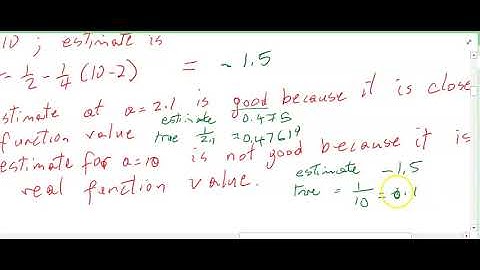 10 ; estimate is
- 1/2 - 1/4 (10-2) = -1.5
estimate at a=2.1 is good because it is close
function value
estimate 0.475
true 1/2.1 = 0.47619
estimate for a=10 is not good because it is
real function value.
estimate -1.5
true = 1/10 = 0.1